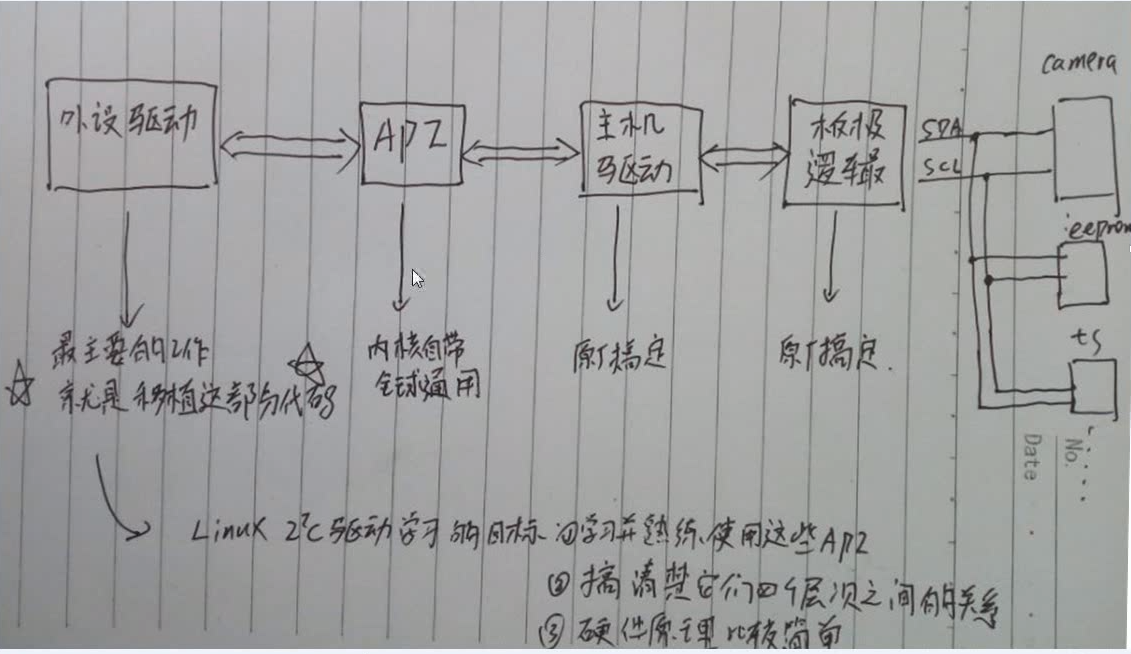 外设驱动
API
主机
驱动
板极
逻辑
SDA
SCL
camera
eeprom
ts
最主要的工作
就是移植这部分代码
内核自带
全球通用
原厂搞定
原厂搞定.
No.
Date
Linux I²C驱动学习的目标. ①学习并熟练使用这些API
② 搞清楚它们四个层次之间的关系
③ 硬件原理比较简单